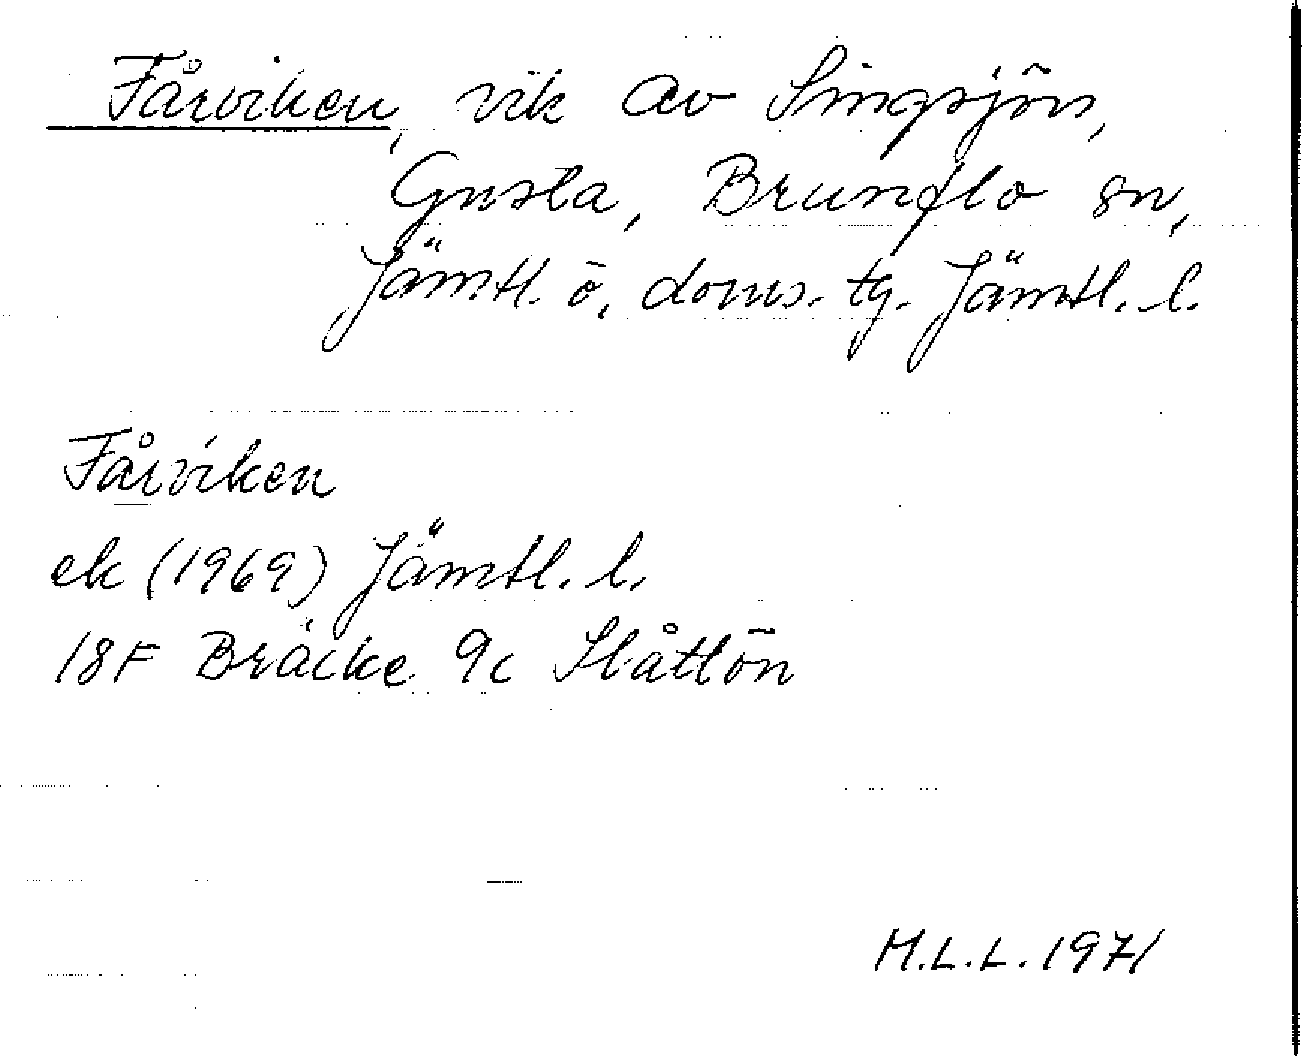 Fårviken, vik av Singsjön,
Gusta, Brunflo sn,
Jämtl. ö. doms. tg. Jämtl. l.
Fårviken
ek (1969) Jämtl. l.
18F Bräcke 9c Slåttön
M.L.L. 1971